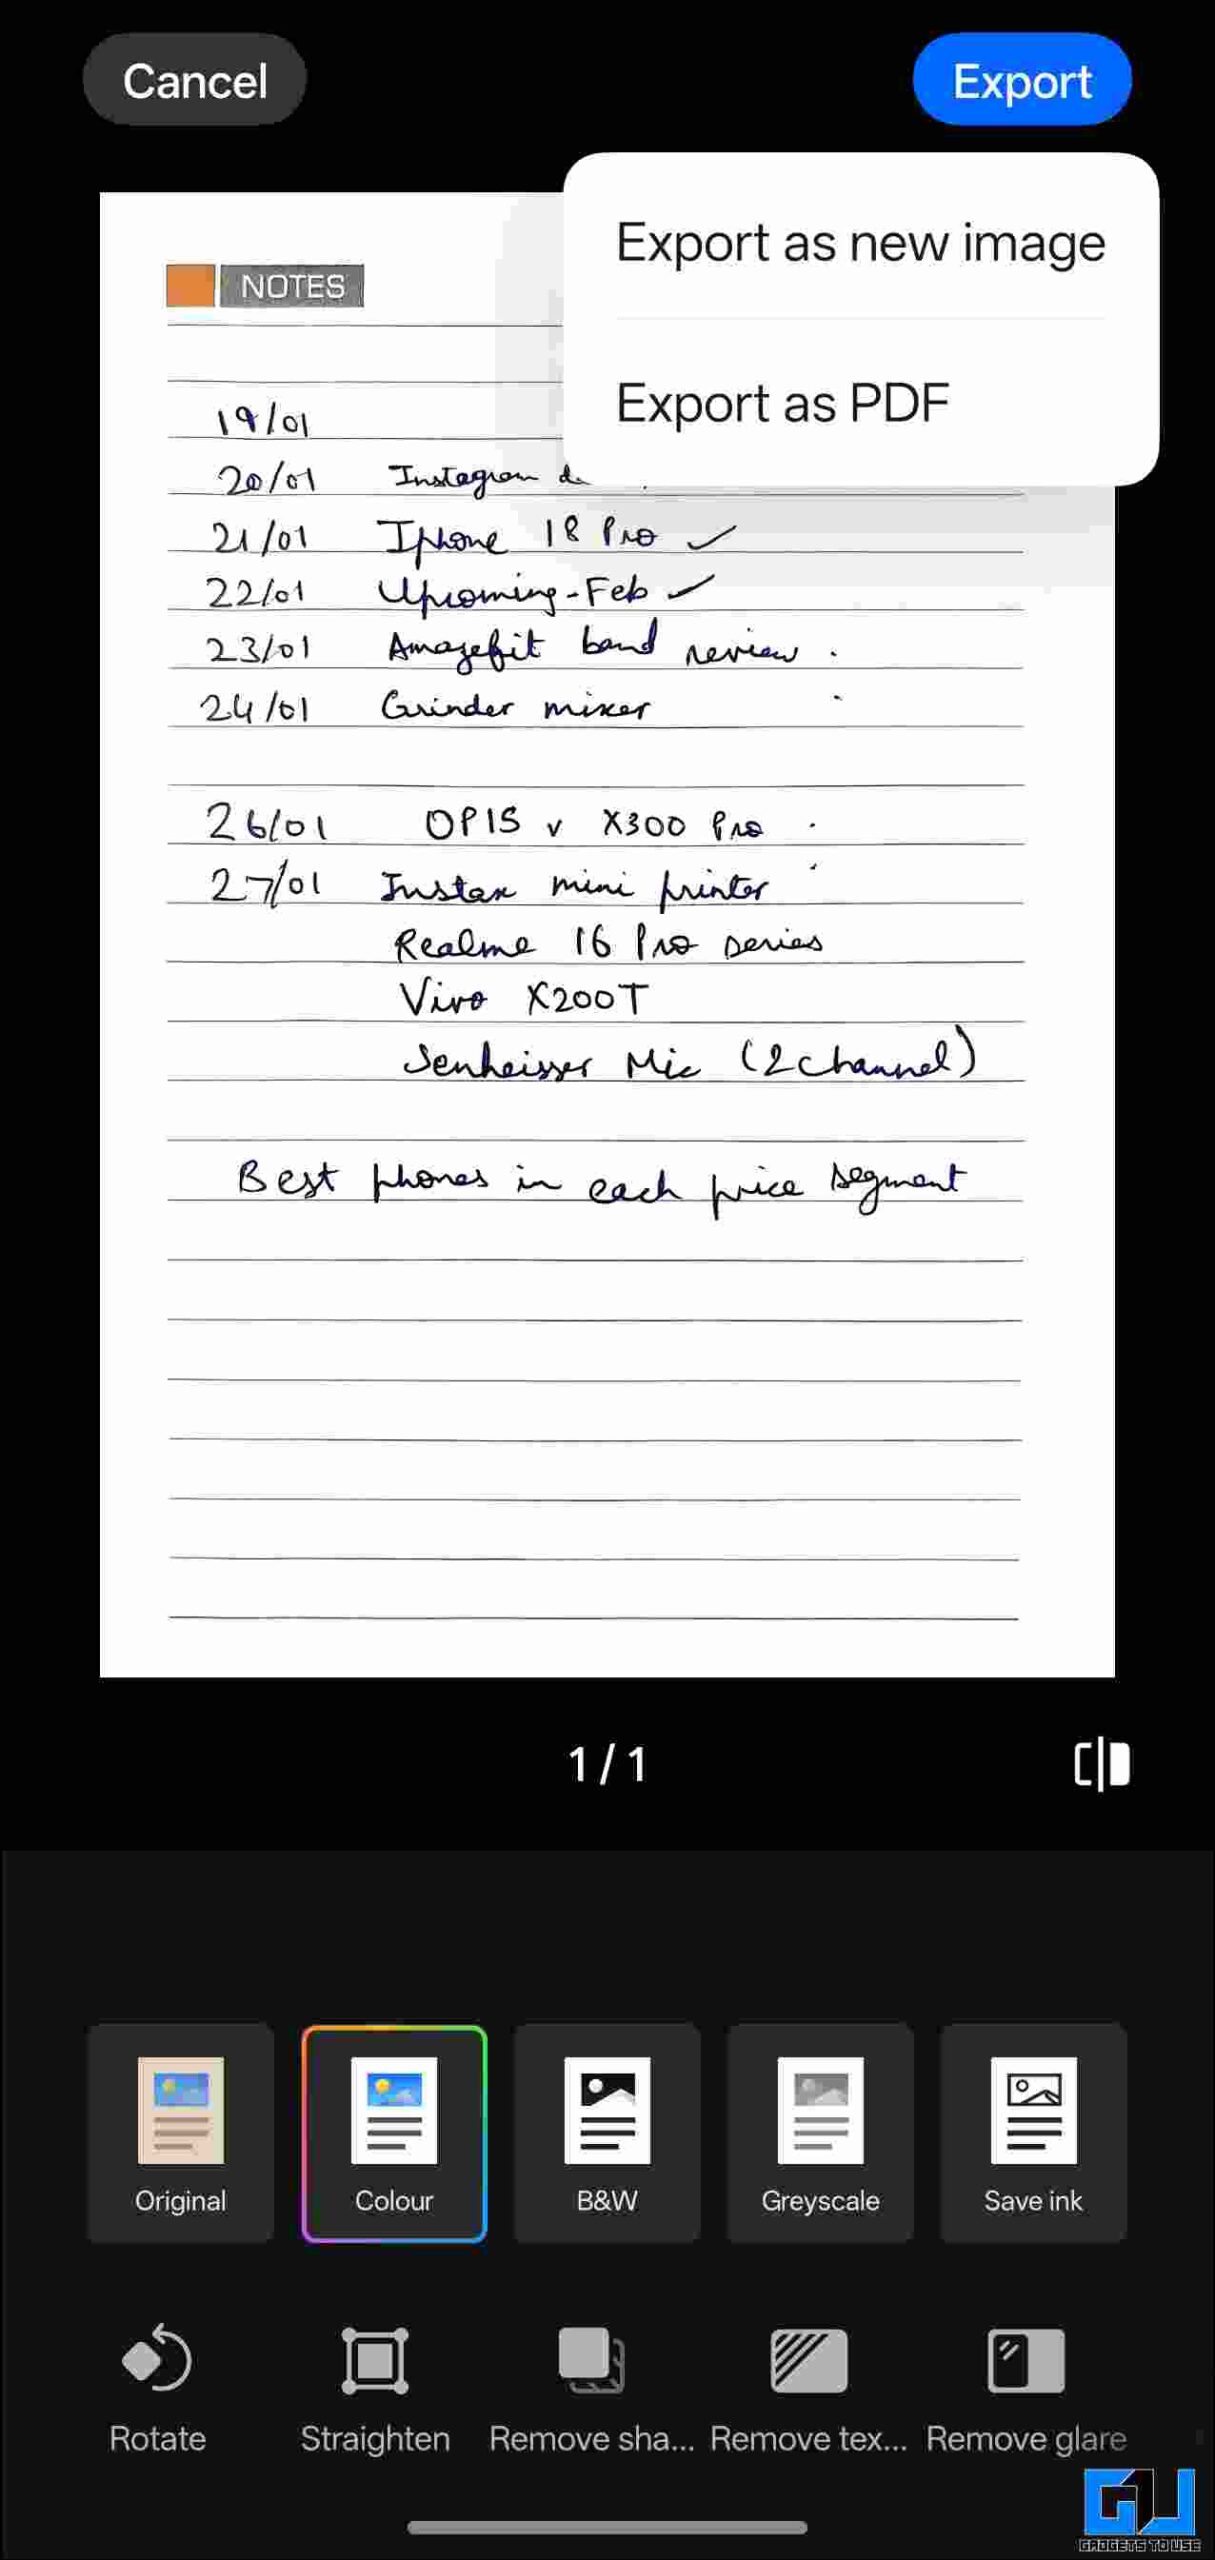 Cancel
Export
Export as new image
Export as PDF
NOTES
19/01
20/01 Instagram
21/01 Iphone 18 Pro ✓
22/01 Upcoming-Feb ✓
23/01 Amazefit band review .
24/01 Grinder mixer
26/01 OP15 v X300 Pro
27/01 Instax mini printer
Realme 16 Pro series
Vivo X200T
Senheisser Mic (2 channel)
Best phones in each price segment
1 / 1
Original
Colour
B&W
Greyscale
Save ink
Rotate
Straighten
Remove sha...
Remove tex...
Remove glare
GADGETS TO USE